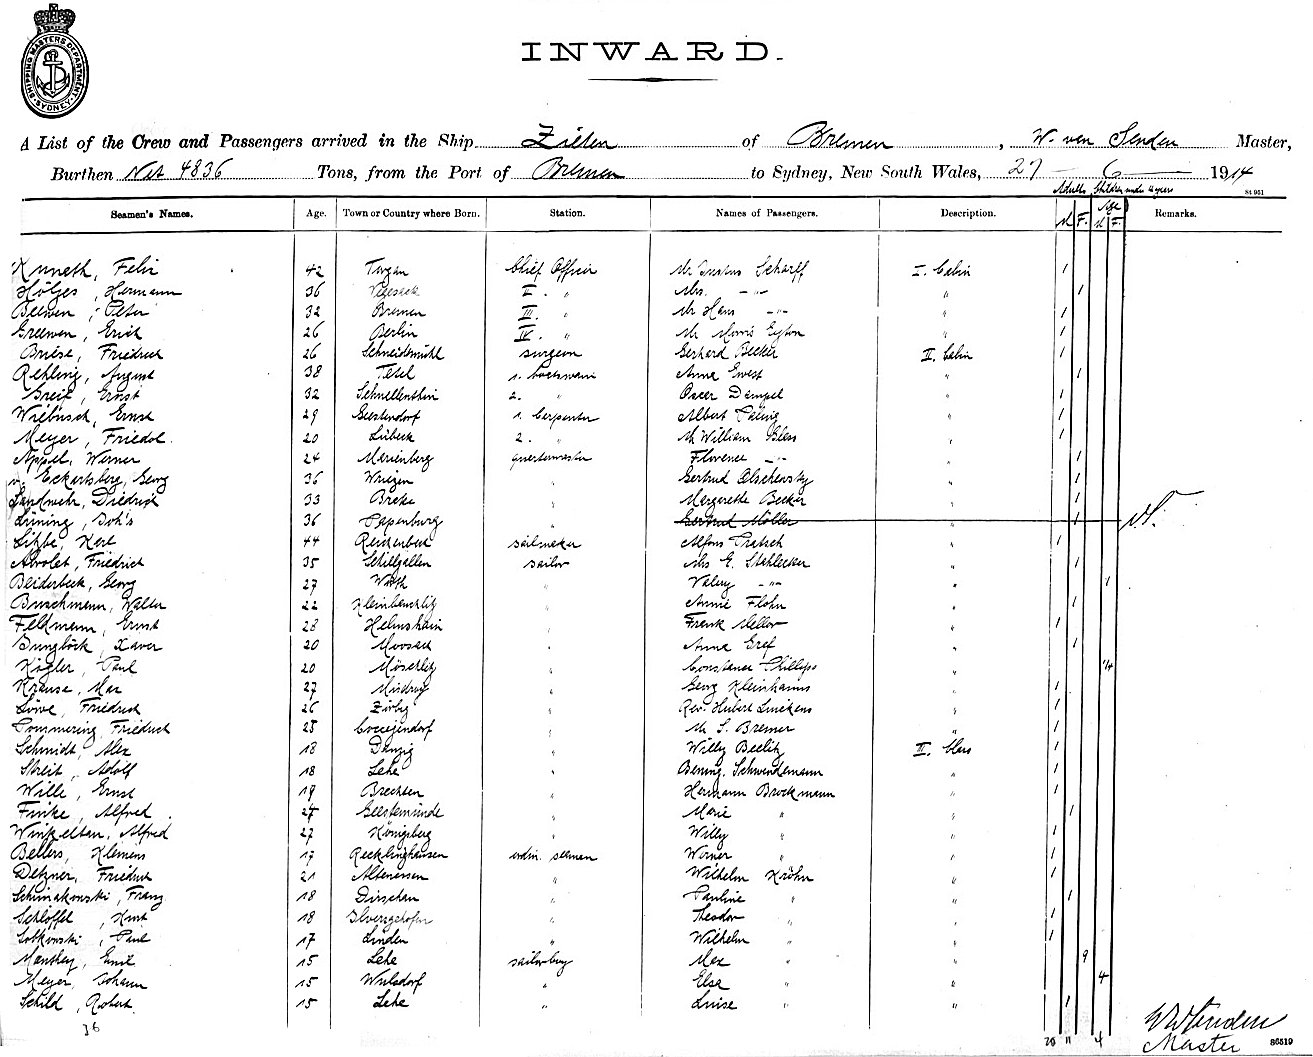 SHIPPING MASTERS DEPARTMENT SYDNEY
INWARD.
A List of the Crew and Passengers arrived in the Ship Zieten of Bremen, W. von Senden Master,
Burthen Net 4836 Tons, from the Port of Bremen to Sydney, New South Wales, 27 - 6 - 1914
Adults Children under 12 years
St 951
Seamen's Names. Age. Town or Country where Born. Station. Names of Passengers. Description. M F. Age M F. Remarks.
Kuneth, Felix 42 Torgau Chief Officer Mr Justus Scharff I. Cabin 1
Höljes, Hermann 36 Vegesack II. " Mrs. -"- " 1
Beewen, Peter 32 Bremen III. " Mr Hans -"- " 1
Greewen, Erich 26 Berlin IV. " Mr Morris Eyton " 1
Briese, Friedrich 26 Schneidemühl surgeon Gerhard Becker II. Cabin 1
Rehling, August 38 1. boatswain Anna Ewest " 1
Greif, Ernst 32 Schnellenthin 2. " Oscar Dämpel " 1
Wiebusch, Ernst 29 Geestendorf 1. Carpenter Albert " 1
Meyer, Friedol. 20 Lübeck 2. " Mr William Bless " 1
Appel, Werner 24 Marienberg quartermaster Florence -"- " 1
v. Eckartsberg, Georg 36 Wriezen " Gertrud Olschewsky " 1
Landwehr, Diedrich 33 Brake " Margarethe Becker " 1
Lüning, Joh's 36 Papenburg " Gertrud Möller " 1
Lippe, Karl 44 Reichenbach sailmaker Alfons Pratsch " 1
Friedrich 35 Schillgallen sailor Mrs E. Stahlecker " 1
Beiderbeck, Georg 27 " Valery -"- " 1
Buschmann, Walter 22 " Annie Flohn " 1
Feldmann, Ernst 28 Helmshain " Frank Mellor " 1
Jungböck, Xaver 20 Moosach " Anna Gref " 1
Kögler, Paul 20 " Constance Phillips " 1/4
Krause, Max 27 " Georg Kleinhanns " 1
Löwe, Friedrich 26 " Rev. Hubert " 1
Pommering, Friedrich 25 " Mr S. Bremer " 1
Schmidt, Alex 18 Danzig " Willy Beelitz III. Class 1
Streit, Adolf 18 Lehe " Bening. Schwendemann " 1
Wille, Ernst 19 Brechten " Hermann Brockmann " 1
Finke, Alfred 27 Geestemünde Marie " " 1
Winkelsen, Alfred 27 Königsberg " Willy " " 1
Bellers, Klemens 17 Recklinghausen ordin. seaman Werner " " 1
Detzner, Friedrich 21 Altenessen " Wilhelm Kröhn " 1
Schimakowski, Franz 18 Dirschau " Pauline " " 1
Schlöffel, Kurt 18 Ilversgehofen " Theodor " 1
Sobkowski, Paul 17 Linden " Wilhelm " " 1
Manthey, Emil 15 Lehe sailorboy Max " " 9
Meyer, Johann 15 Wulsdorf " Else " " 4
Schild, Robert 15 Lehe " Luise " " 1
36
20 11 4
WvSenden
Master
86519